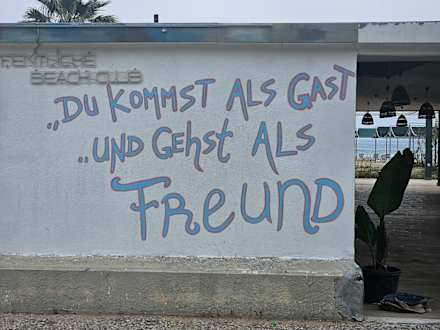 BEACH CLUB
„DU KOMMST ALS GAST
„UND GEHST ALS
FREUND